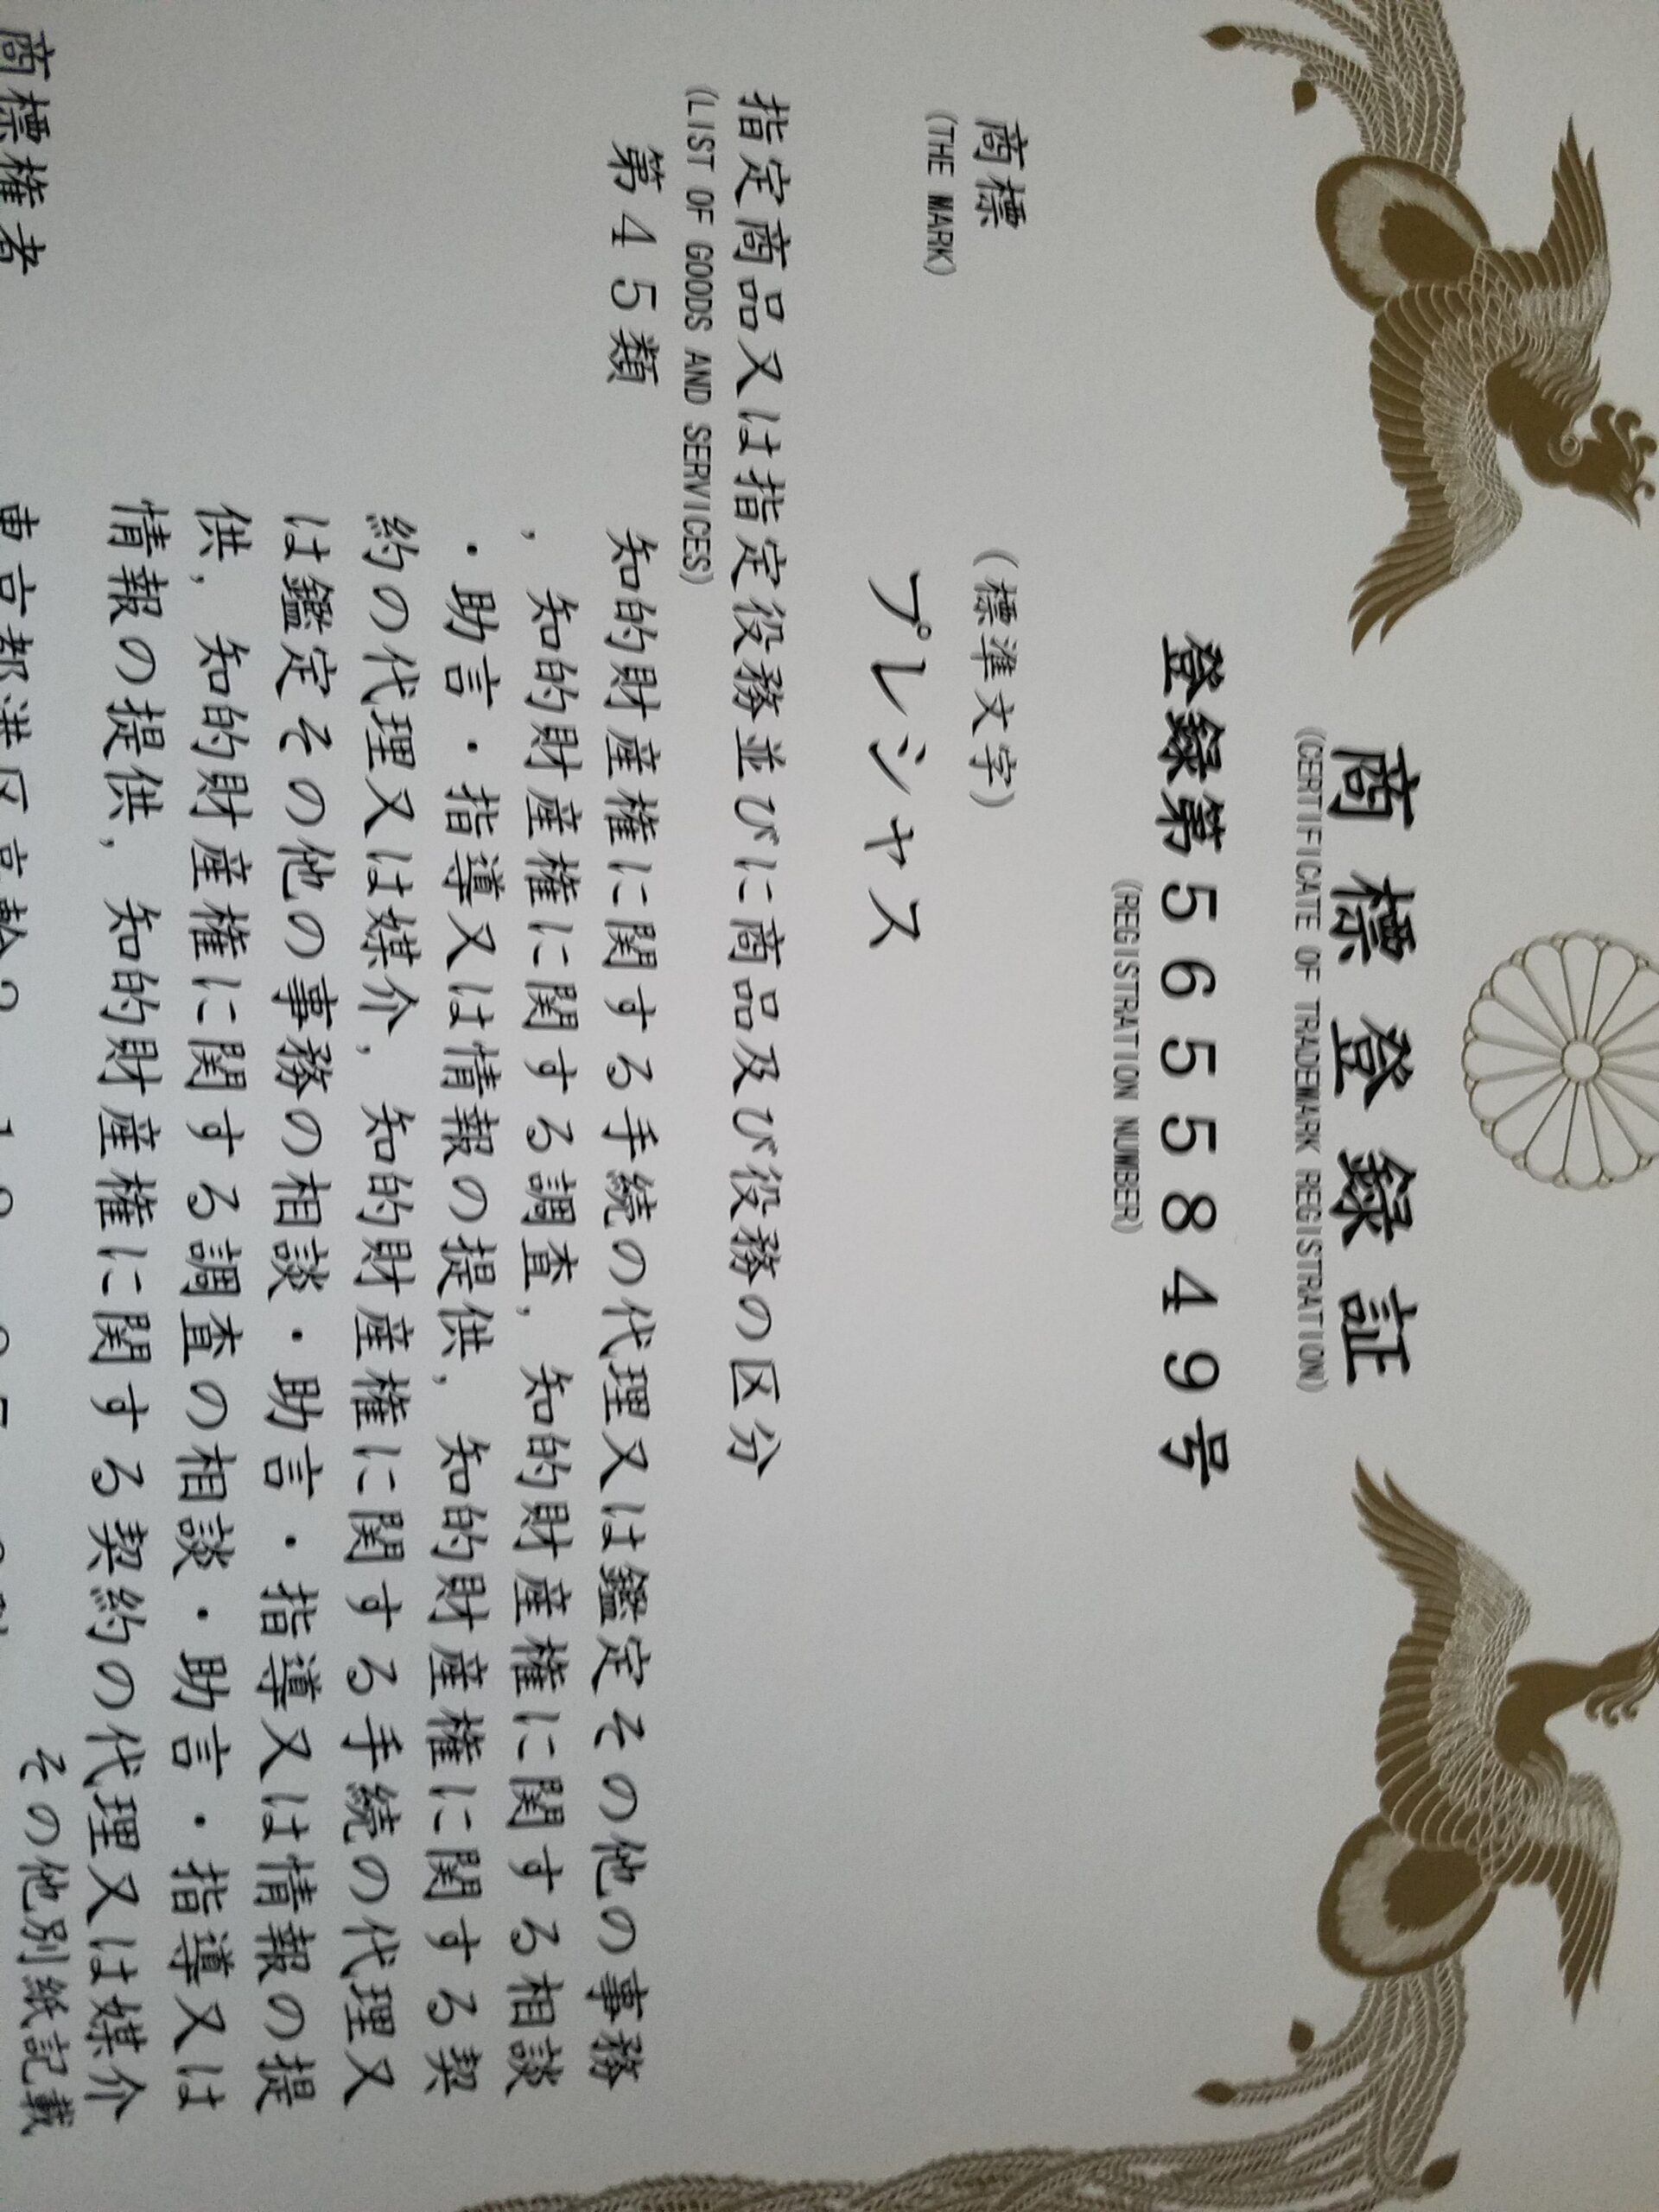 商標登録証
(CERTIFICATE OF TRADEMARK REGISTRATION)
登録第5655849号
(REGISTRATION NUMBER)
商標
(THE MARK)
(標準文字)
プレシャス
指定商品又は指定役務並びに商品及び役務の区分
(LIST OF GOODS AND SERVICES)
第45類 知的財産権に関する手続の代理又は鑑定その他の事務
，知的財産権に関する調査，知的財産権に関する相談
・助言・指導又は情報の提供，知的財産権に関する契
約の代理又は媒介，知的財産権に関する手続の代理又
は鑑定その他の事務の相談・助言・指導又は情報の提
供，知的財産権に関する調査の相談・助言・指導又は
情報の提供，知的財産権に関する契約の代理又は媒介
その他別紙記載
商標権者